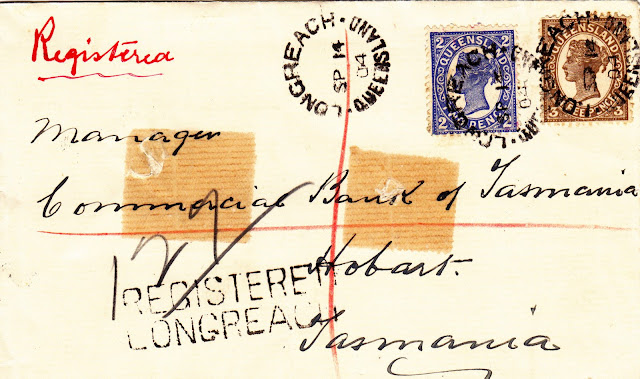 Registered
LONGREACH · QUEENSLAND
SP 14
04
QUEENSLAND
2 2
TWO PENCE
QUEENSLAND
LONGREACH
Manager
Commercial Bank of Tasmania
Hobart.
Tasmania
REGISTERED
LONGREACH